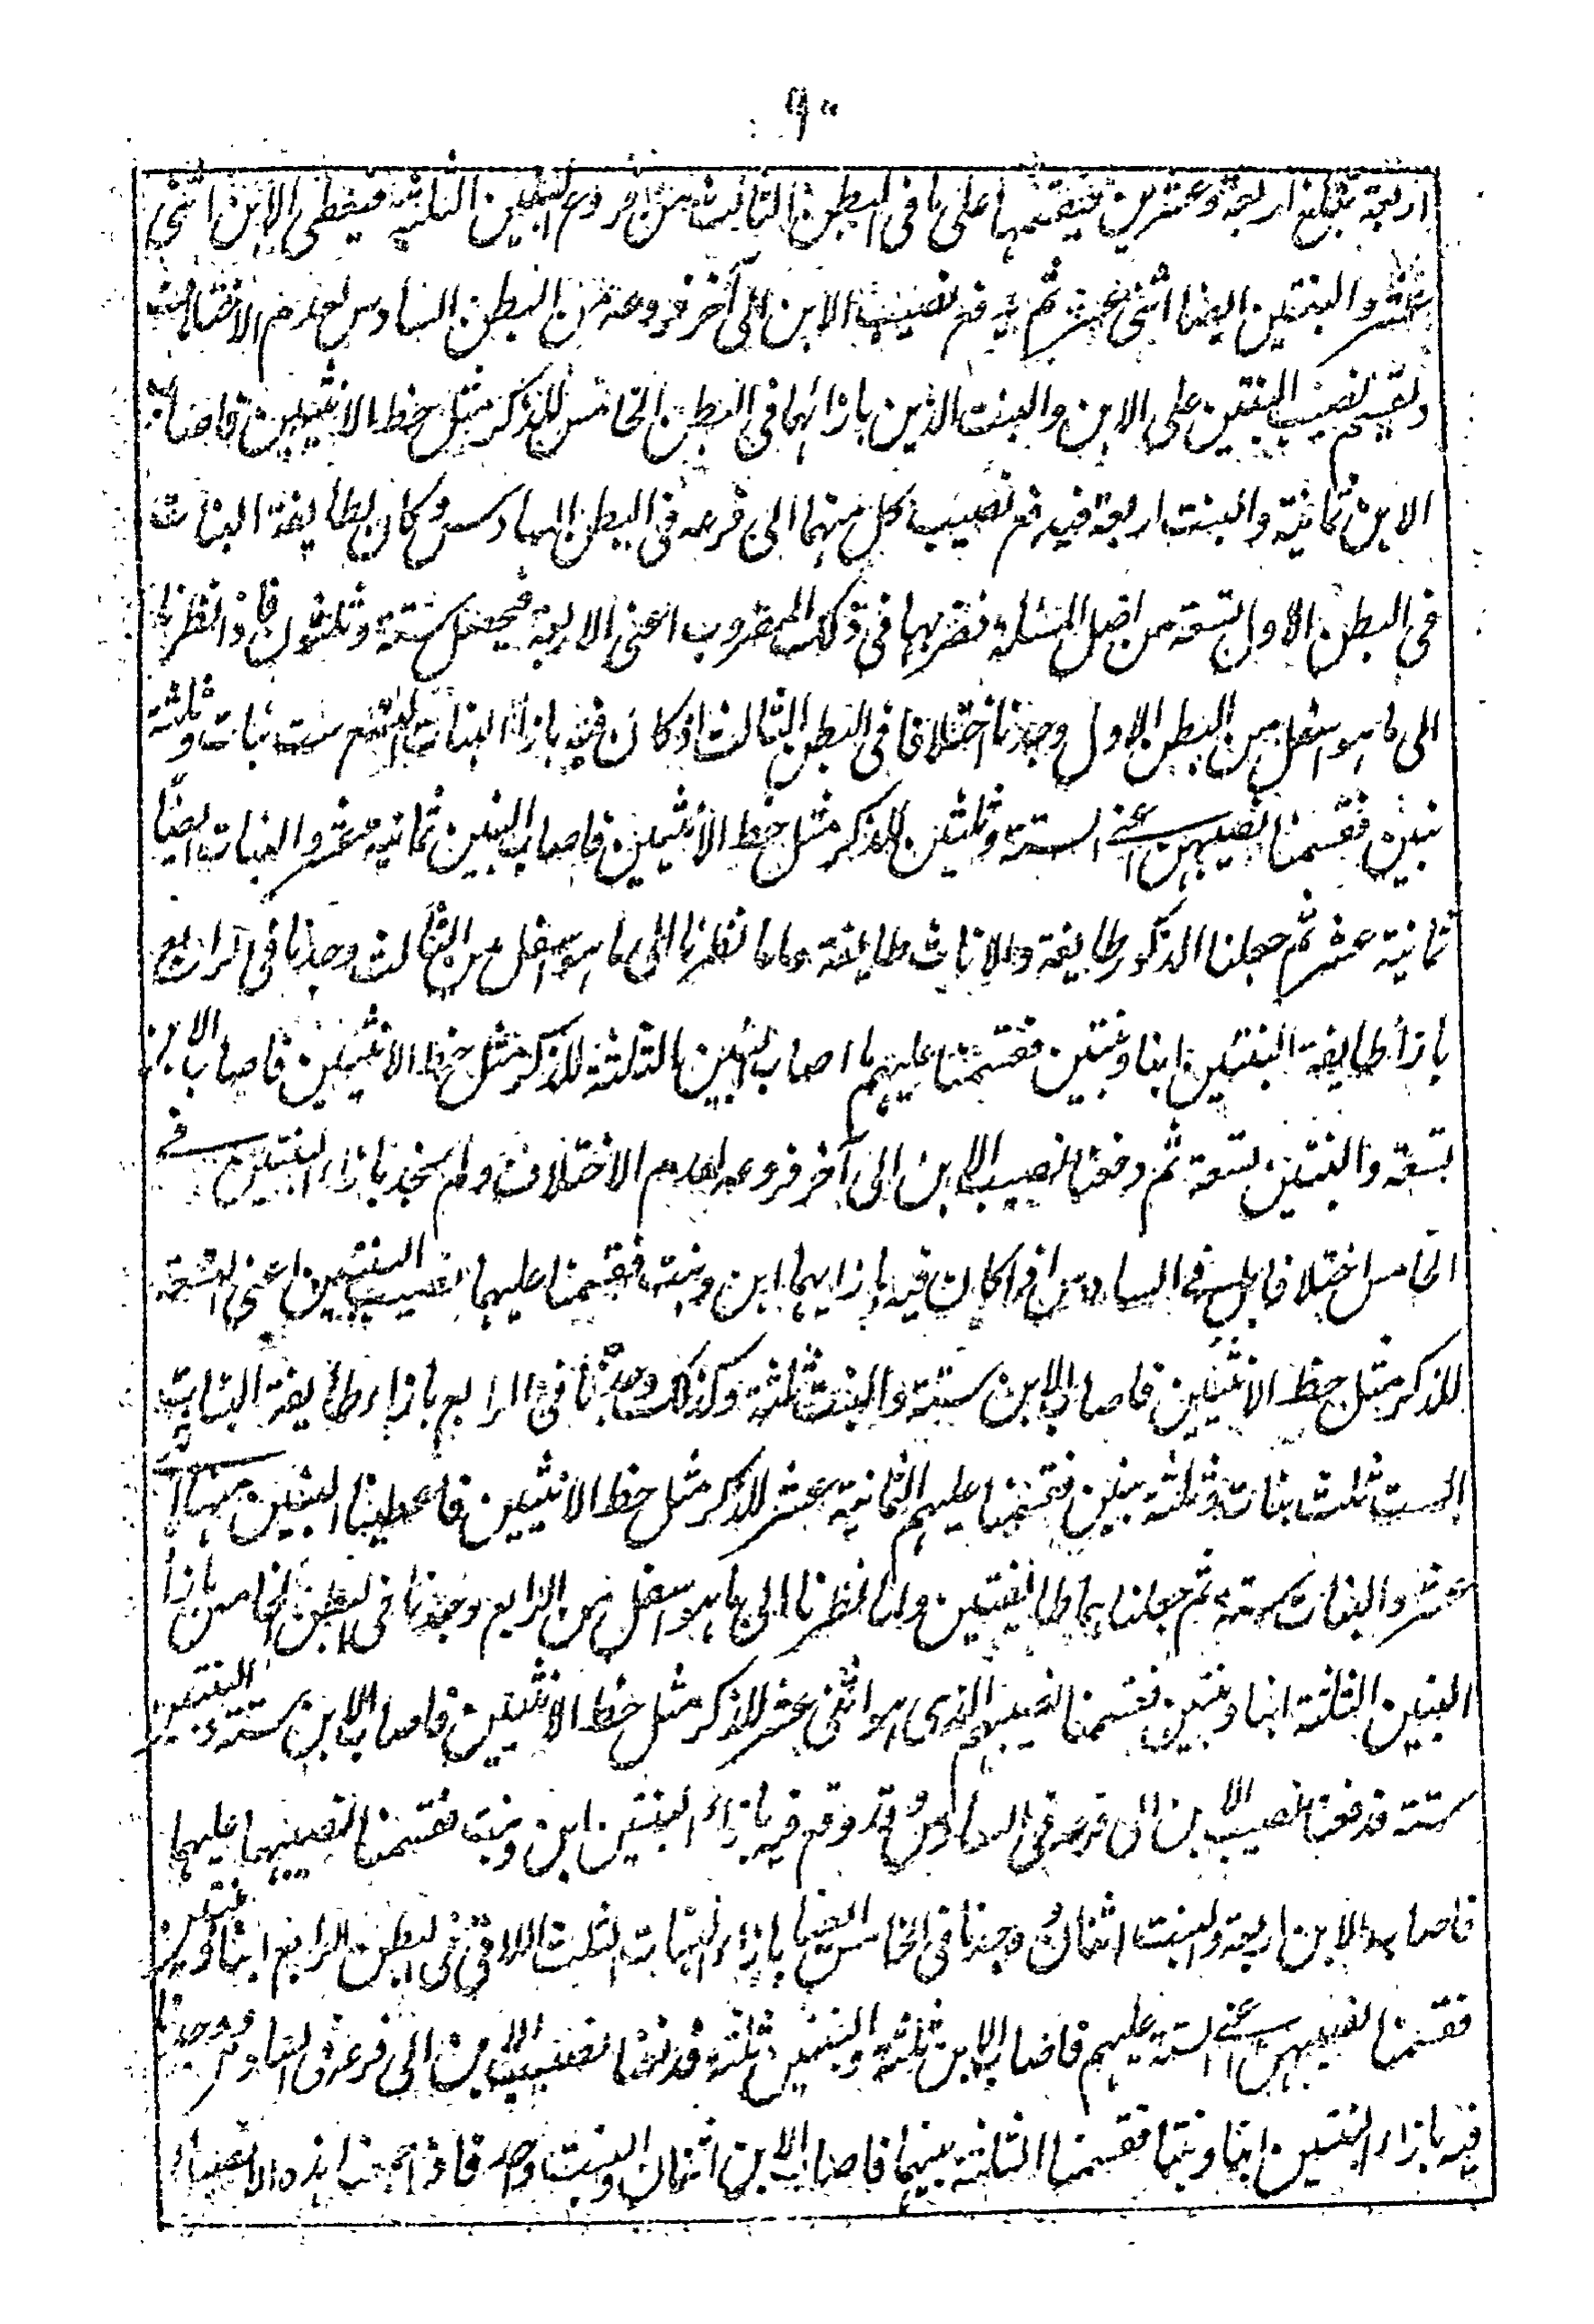 ٩٠
اربعة تبلغ اربعة وعشرين فنقسمها على ما فى البطن الثالث من فروع البنين الثلثة فيعطى الابن اثنى
عشر والبنتين ايضا اثنى عشر ثم يدفع نصيب الابن الى آخر فروعه من البطن السادس لعدم الاختلاف
ونقسم نصيب البنتين على الابن والبنت الذين بازائهما فى البطن الخامس للذكر مثل حظ الانثيين فاصاب
الابن ثمانية والبنت اربعة فيدفع نصيب كل منهما الى فرعه فى البطن السادس وكان لطايفة البنات
فى البطن الاول تسعة من اصل المسئلة فضربها فى ذلك المضروب اعنى الاربعة فيحصل ستة وثلثون فاذا نظرنا
الى ما هو اسفل من البطن الاول وجدنا اختلافا فى البطن الثالث اذ كان فيه بازاء البنات التسع ست بنات وثلثة
بنين فقسمنا نصيبهن اعنى الستة وثلثين للذكر مثل حظ الانثيين فاصاب البنين ثمانية عشر والبنات ايضا
ثمانية عشر ثم جعلنا الذكور طايفة والاناث طايفة ولما نظرنا الى ما هو اسفل من الثالث وجدنا فى الرابع
بازاء طايفة البنين ابنا وبنتين فقسمنا عليهم ما اصاب البنين الثلثة للذكر مثل حظ الانثيين فاصاب الابن
تسعة والبنتين تسعة ثم دفعنا نصيب الابن الى آخر فروعه لعدم الاختلاف ولم نجد بازاء البنتين فى
الخامس اختلافا بل فى السادس اذ كان فيه بازايهما ابن وبنت فقسمنا عليهما نصيب البنتين اعنى التسعة
للذكر مثل حظ الانثيين فاصاب الابن ستة والبنت ثلثة وكذلك وجدنا فى الرابع بازاء طايفة البنات
الست ثلث بنات وثلثة بنين فقسمنا عليهم الثمانية عشر للذكر مثل حظ الانثيين فاعطينا البنين منها اثنى
عشر والبنات ستة ثم جعلنا هما طائفتين ولما نظرنا الى ما هو اسفل من الرابع وجدنا فى البطن الخامس بازاء
البنين الثلثة ابنا وبنتين فقسمنا نصيبهم الذى هو اثنى عشر للذكر مثل حظ الانثيين فاصاب الابن ستة والبنتين
ستة فدفعنا نصيب الابن الى فرعه فى السادس وقد وقع فيه بازاء البنتين ابن وبنت فقسمنا نصيبهما عليهما
فاصاب الابن اربعة والبنت اثنان وجدنا فى الخامس ايضا بازاء البنات الثلث اللاتى فى البطن الرابع ابنا وبنتين
فقسمنا نصيبهن اعنى الستة عليهم فاصاب الابن ثلثة والبنتين ثلثة فدفعنا نصيب الابن الى فرعه فى السادس ووجدنا
فيه بازاء البنتين ابنا وبنتا فقسمنا الثلثة بينهما فاصاب الابن اثنان والبنت واحد فاذا جمعنا هذه الانصباء